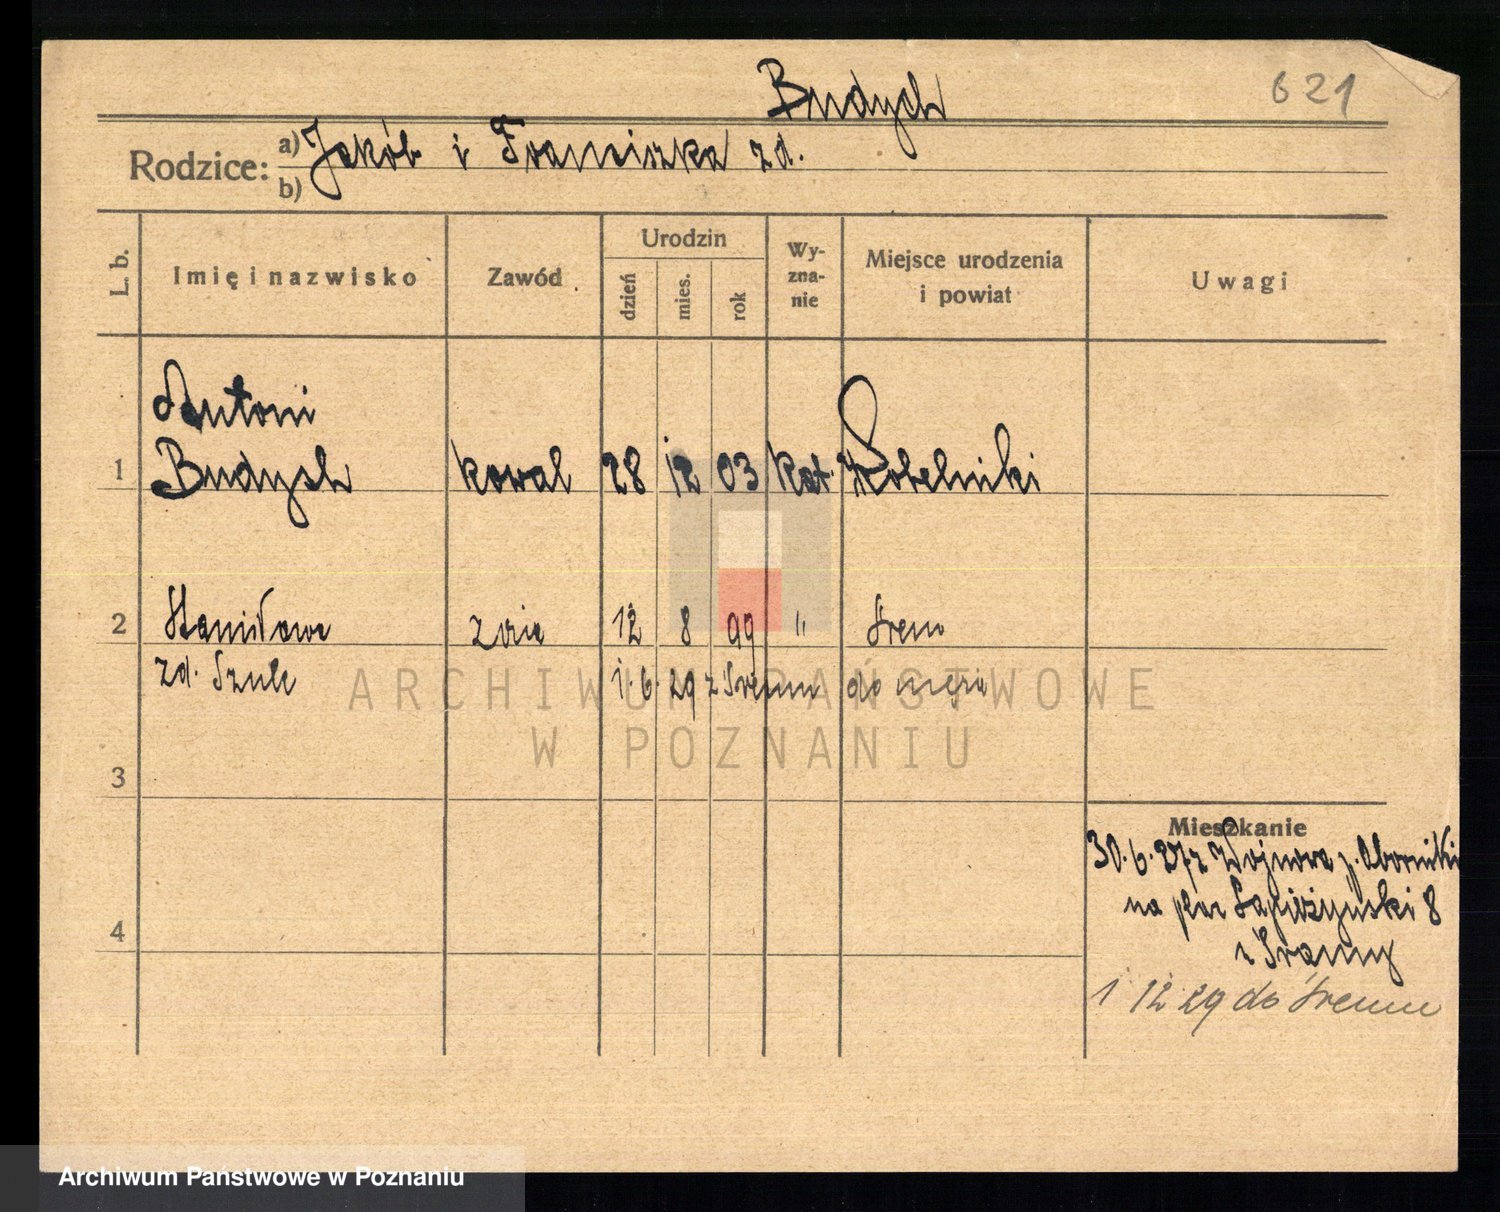 Budych
621
Rodzice: a) Jakób i Franciszka zd.
b)
L. b. Imię i nazwisko Zawód Urodzin dzień mies. rok Wyznanie Miejsce urodzenia i powiat Uwagi
Antoni
1 Budych kowal 28 12 03 kat. Kobelniki
2 Stanisława żona 12 8 99 " Śrem
zd. Szulc 1. 6. 29 z Śremu do męża
3
Mieszkanie
30. 6. 27 z Wojnowa p. Oborniki
na plac Sapieżyński 8
4
1 12 29 do Śremu
ARCHIWUM PAŃSTWOWE
W POZNANIU
Archiwum Państwowe w Poznaniu